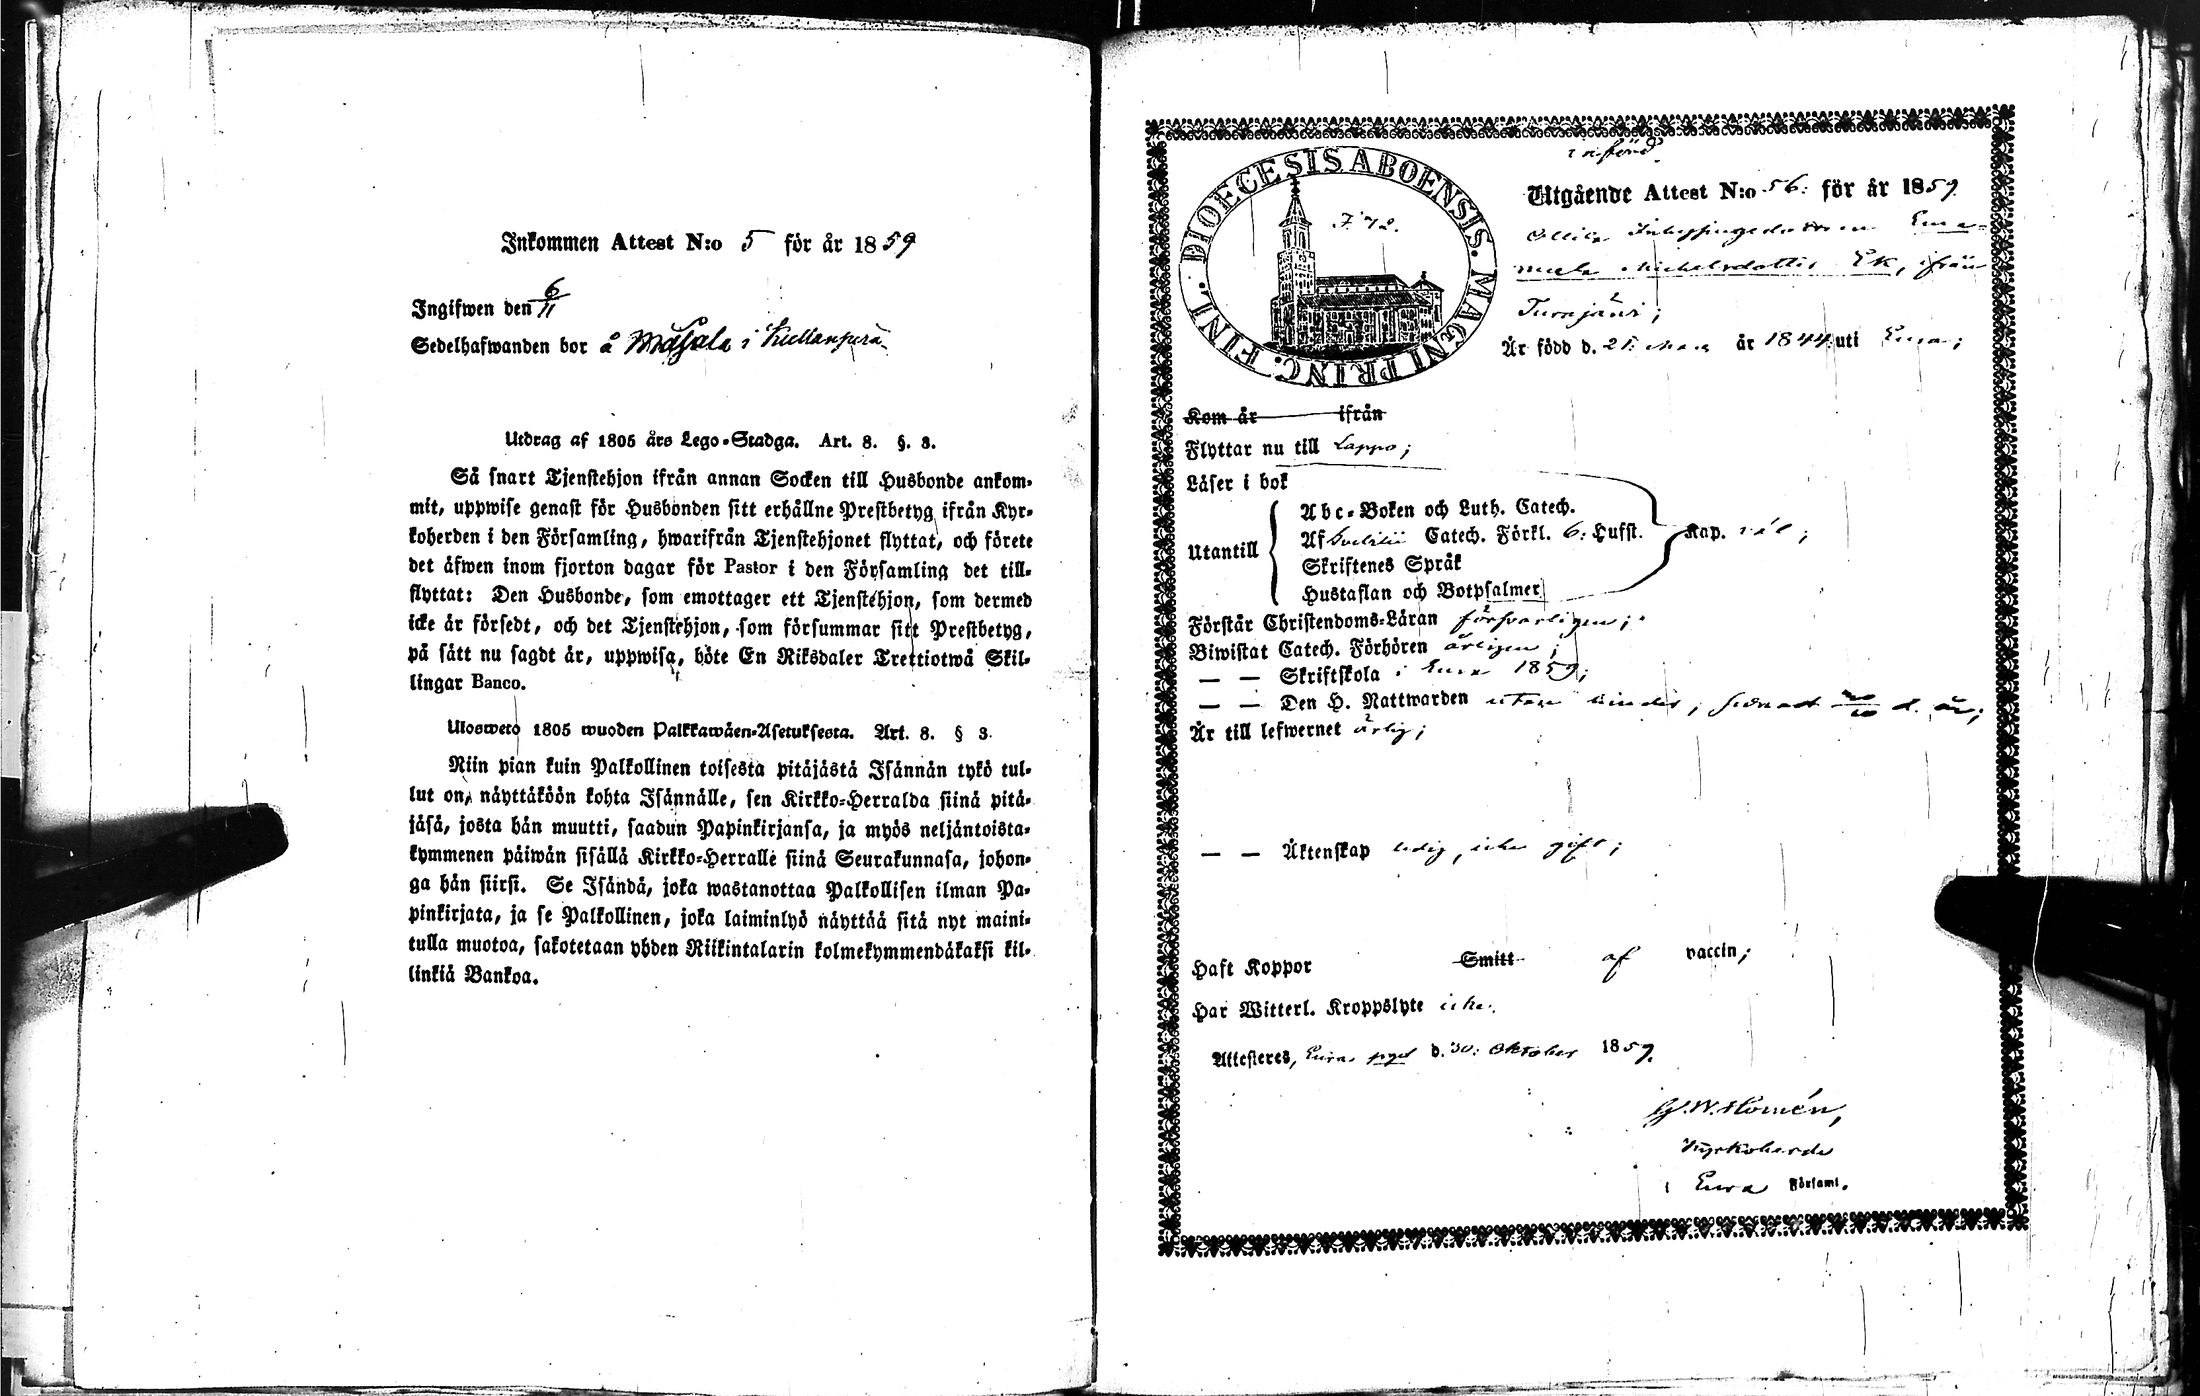 Inkommen Attest N:o 5 för år 1859
Ingifwen den 6/11
Sedelhafwanden bor å i
Utdrag af 1805 års Lego-Stadga. Art. 8. §. 3.
Så snart Tjenstehjon ifrån annan Socken till Husbonde ankom-
mit, uppwise genast för Husbonden sitt erhållne Prestbetyg ifrån Kyr-
koherden i den Församling, hwarifrån Tjenstehjonet flyttat, och förete
det äfwen inom fjorton dagar för Pastor i den Församling det till-
flyttat: Den Husbonde, som emottager ett Tjenstehjon, som dermed
icke är försedt, och det Tjenstehjon, som försummar sitt Prestbetyg,
på sätt nu sagdt är, uppwisa, böte En Riksdaler Trettiotwå Skil-
lingar Banco.
Ulosweto 1805 wuoden Palkkawäen-Asetuksesta. Art. 8. § 3.
Niin pian kuin Palkollinen toisesta pitäjästä Isännän tykö tul-
lut on, näyttäköön kohta Isännälle, sen Kirkko-Herralda siinä pitä-
jäsä, josta hän muutti, saadun Papinkirjansa, ja myös neljäntoista-
kymmenen päiwän sisällä Kirkko-Herralle siinä Seurakunnasa, johon-
ga hän siirsi. Se Isändä, joka wastanottaa Palkollisen ilman Pa-
pinkirjata, ja se Palkollinen, joka laiminlyö näyttää sitä nyt maini-
tulla muotoa, sakotetaan yhden Riikintalarin kolmekymmendäkaksi kil-
linkiä Bankoa.
införd
DIOECESIS ABOENSIS. MAGNI PRINC. FINL.
F. 72.
Utgående Attest N:o 56: för år 1859.
Michelsdotter Ek, ifrån
Turajärvi;
Är född d. 21: år 1844 uti Eura;
Kom år ifrån
Flyttar nu till Lappo;
Läser i bok
Utantill
Abc-Boken och Luth. Catech.
Af Svebilii Catech. Förkl. 6: Hufst.
Skriftenes Språk
Hustaflan och Botpsalmer
Kap. väl;
Förstår Christendoms-Läran försvarligen;
Biwistat Catech. Förhören årligen;
— — Skriftskola i Eura 1859;
— — Den H. Nattwarden utan hinder, senast d. år;
Är till lefwernet ärlig;
— — Äktenskap ledig, icke gift;
Haft Koppor Smitt af vaccin;
Har Witterl. Kroppslyte icke.
Attesteres, Eura pgd d. 30: Oktober 1859.
G. W. Homén,
Kyrkoherde
i Eura Församl.